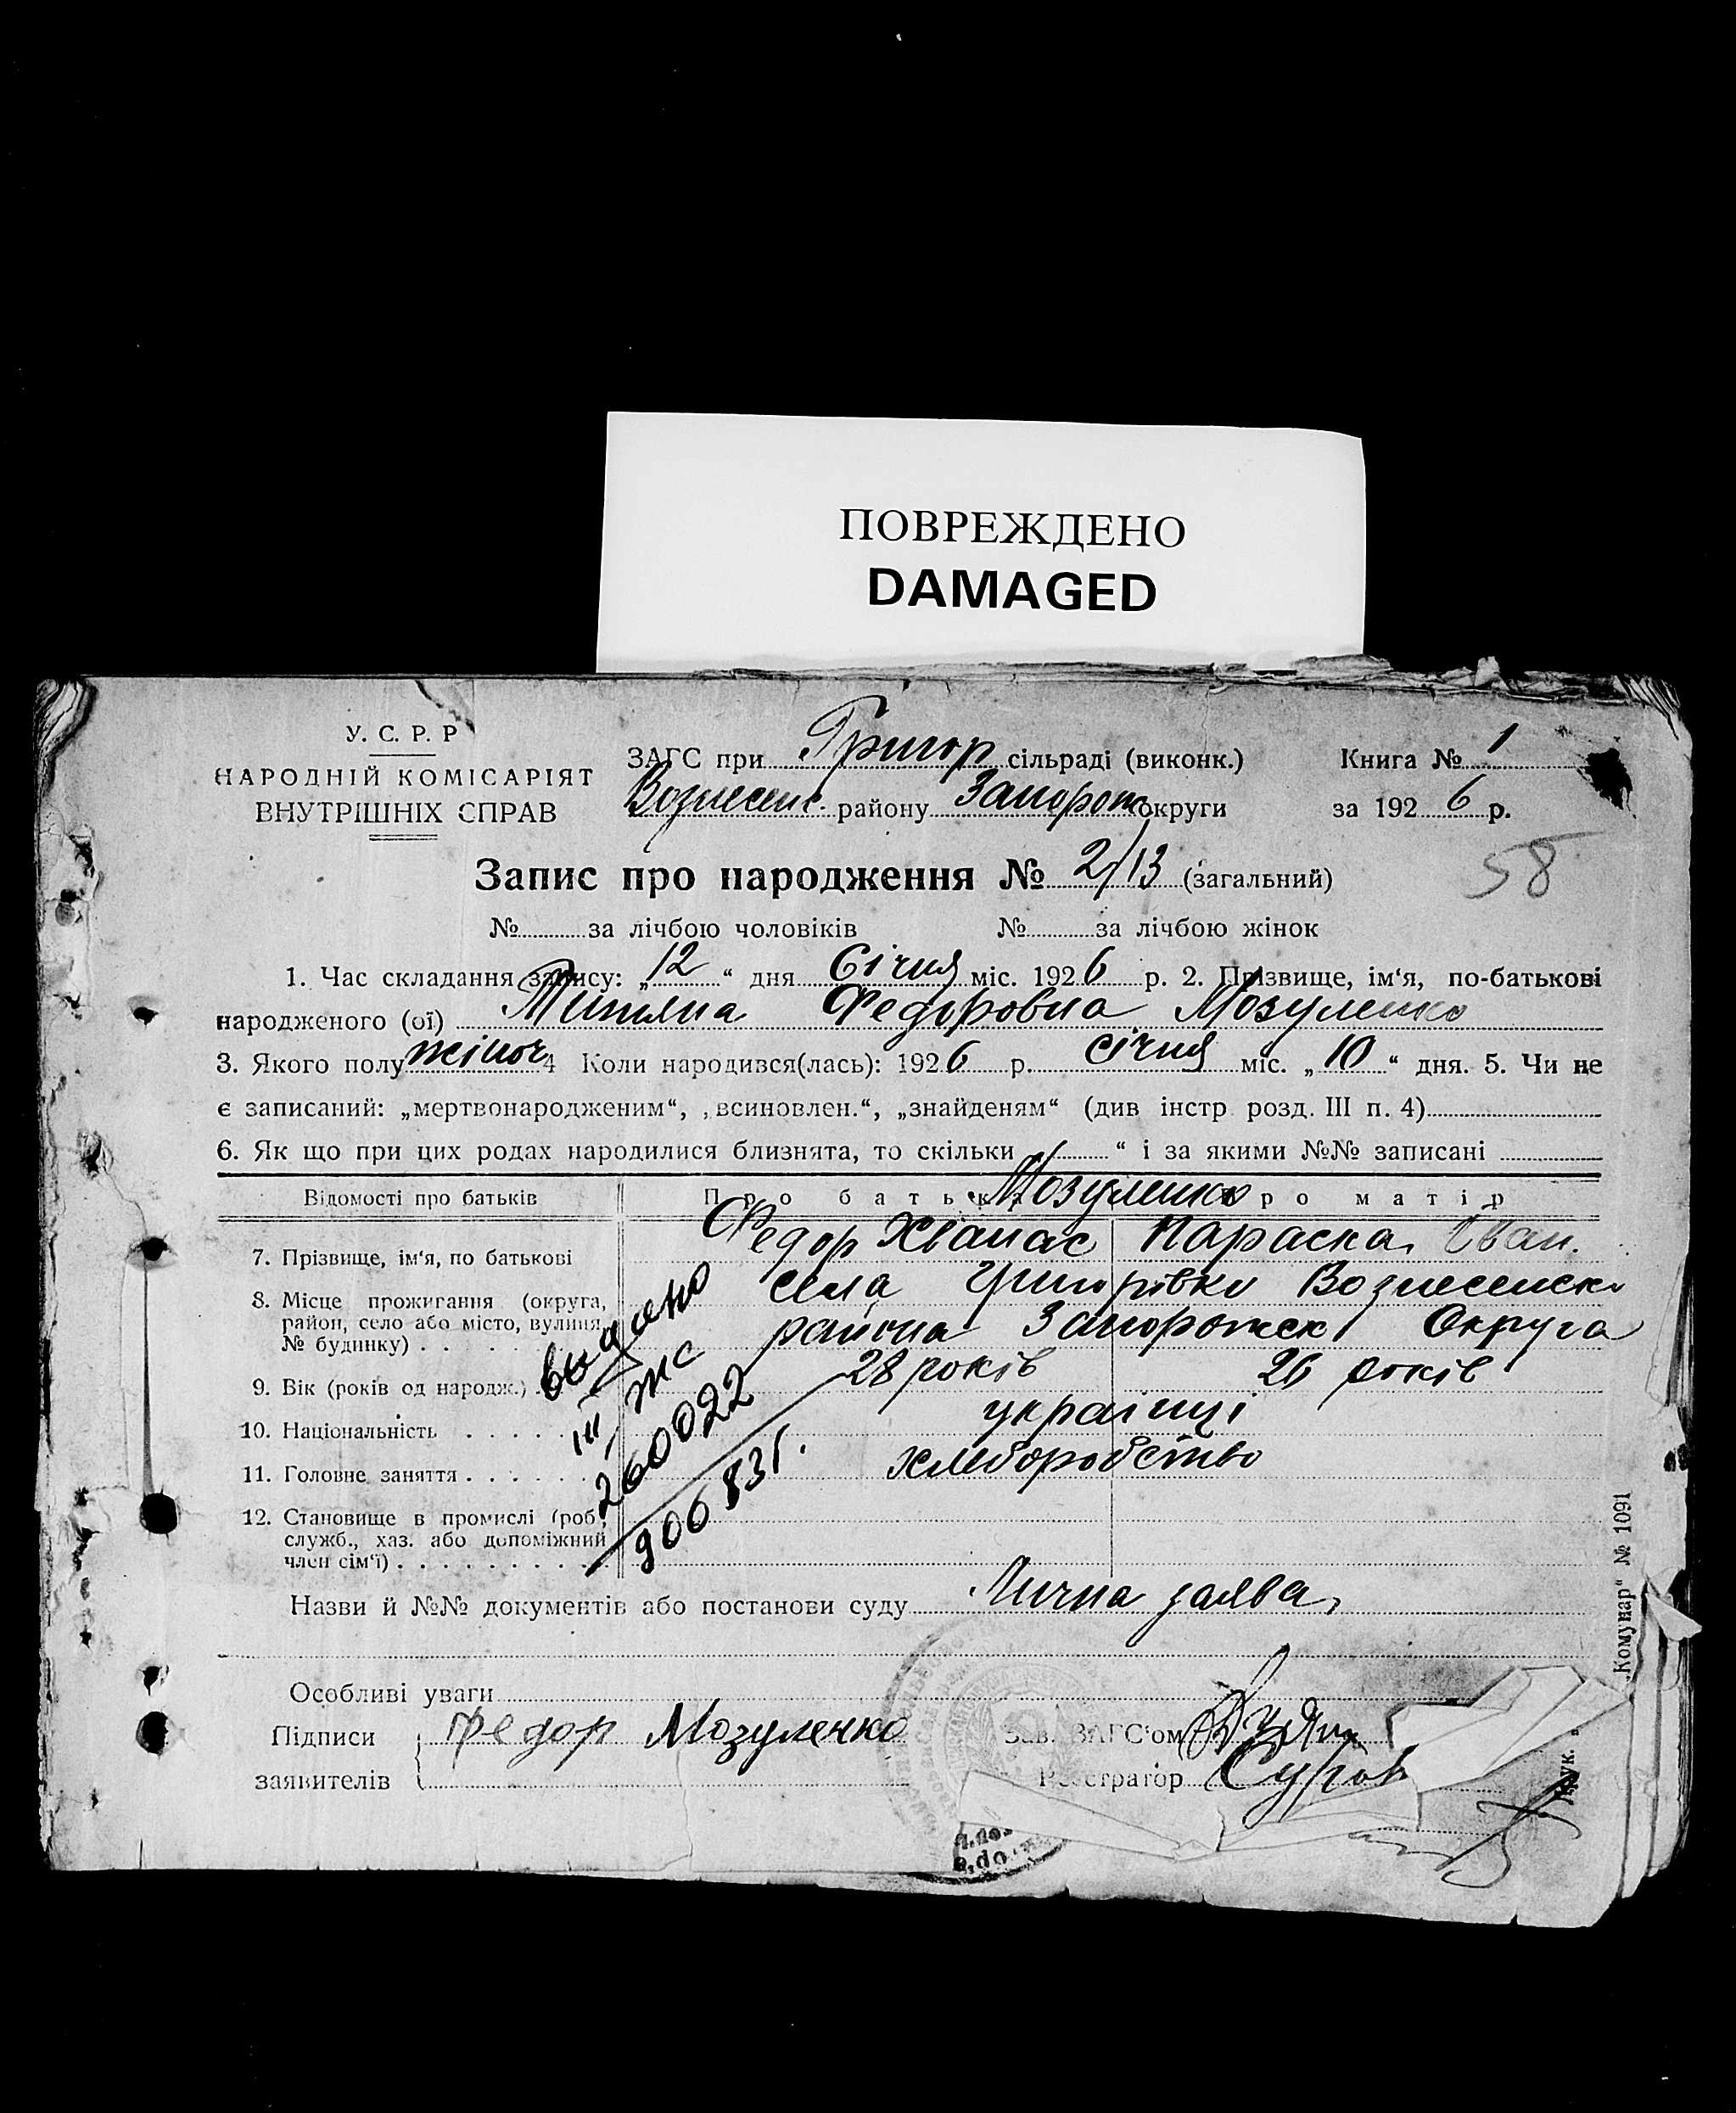 ПОВРЕЖДЕНО
DAMAGED
У. С. Р. Р
НАРОДНІЙ КОМІСАРІЯТ
ВНУТРІШНІХ СПРАВ
ЗАГС при Григор сільраді (виконк.)
Вознесенс. району Запорож округи
Книга № 1
за 1926 р.
Запис про народження № 2/13 (загальний)
58
№ за лічбою чоловіків № за лічбою жінок
1. Час складання запису: „12“ дня Січня міс. 1926 р. 2. Прізвище, ім'я, по-батькові
народженого (ої) Федоровна Мозуленко
3. Якого полу жіноч 4 Коли народився(лась): 1926 р. січня міс. „10“ дня. 5. Чи не
є записаний: „мертвонародженим“, „всиновлен.“, „знайденям“ (див інстр розд. III п. 4)
6. Як що при цих родах народилися близнята, то скільки „ “ і за якими №№ записані
Відомості про батьків Про батьк Мозуленко ро матір
7. Прізвище, ім'я, по батькові Федор Хванас Параска Іван.
8. Місце прожигання (округа, села Григорівки Вознесенск
район, село або місто, вулиця, района Запорожск Округа
№ будинку)
9. Вік (років од народж.) 28 років 26 років
10. Національність українці
11. Головне заняття хлеборобство
12. Становище в промислі (роб.,
служб., хаз. або допоміжний
член сім'ї)
выдано
III ЖС
260022
906 83г.
Назви й №№ документів або постанови суду Лична заява,
Особливі уваги
Підписи Федор Мозуленко Зав. ЗАГС'ом
заявителів Регстратор Суров
„Комунар“ № 1091
Друк.